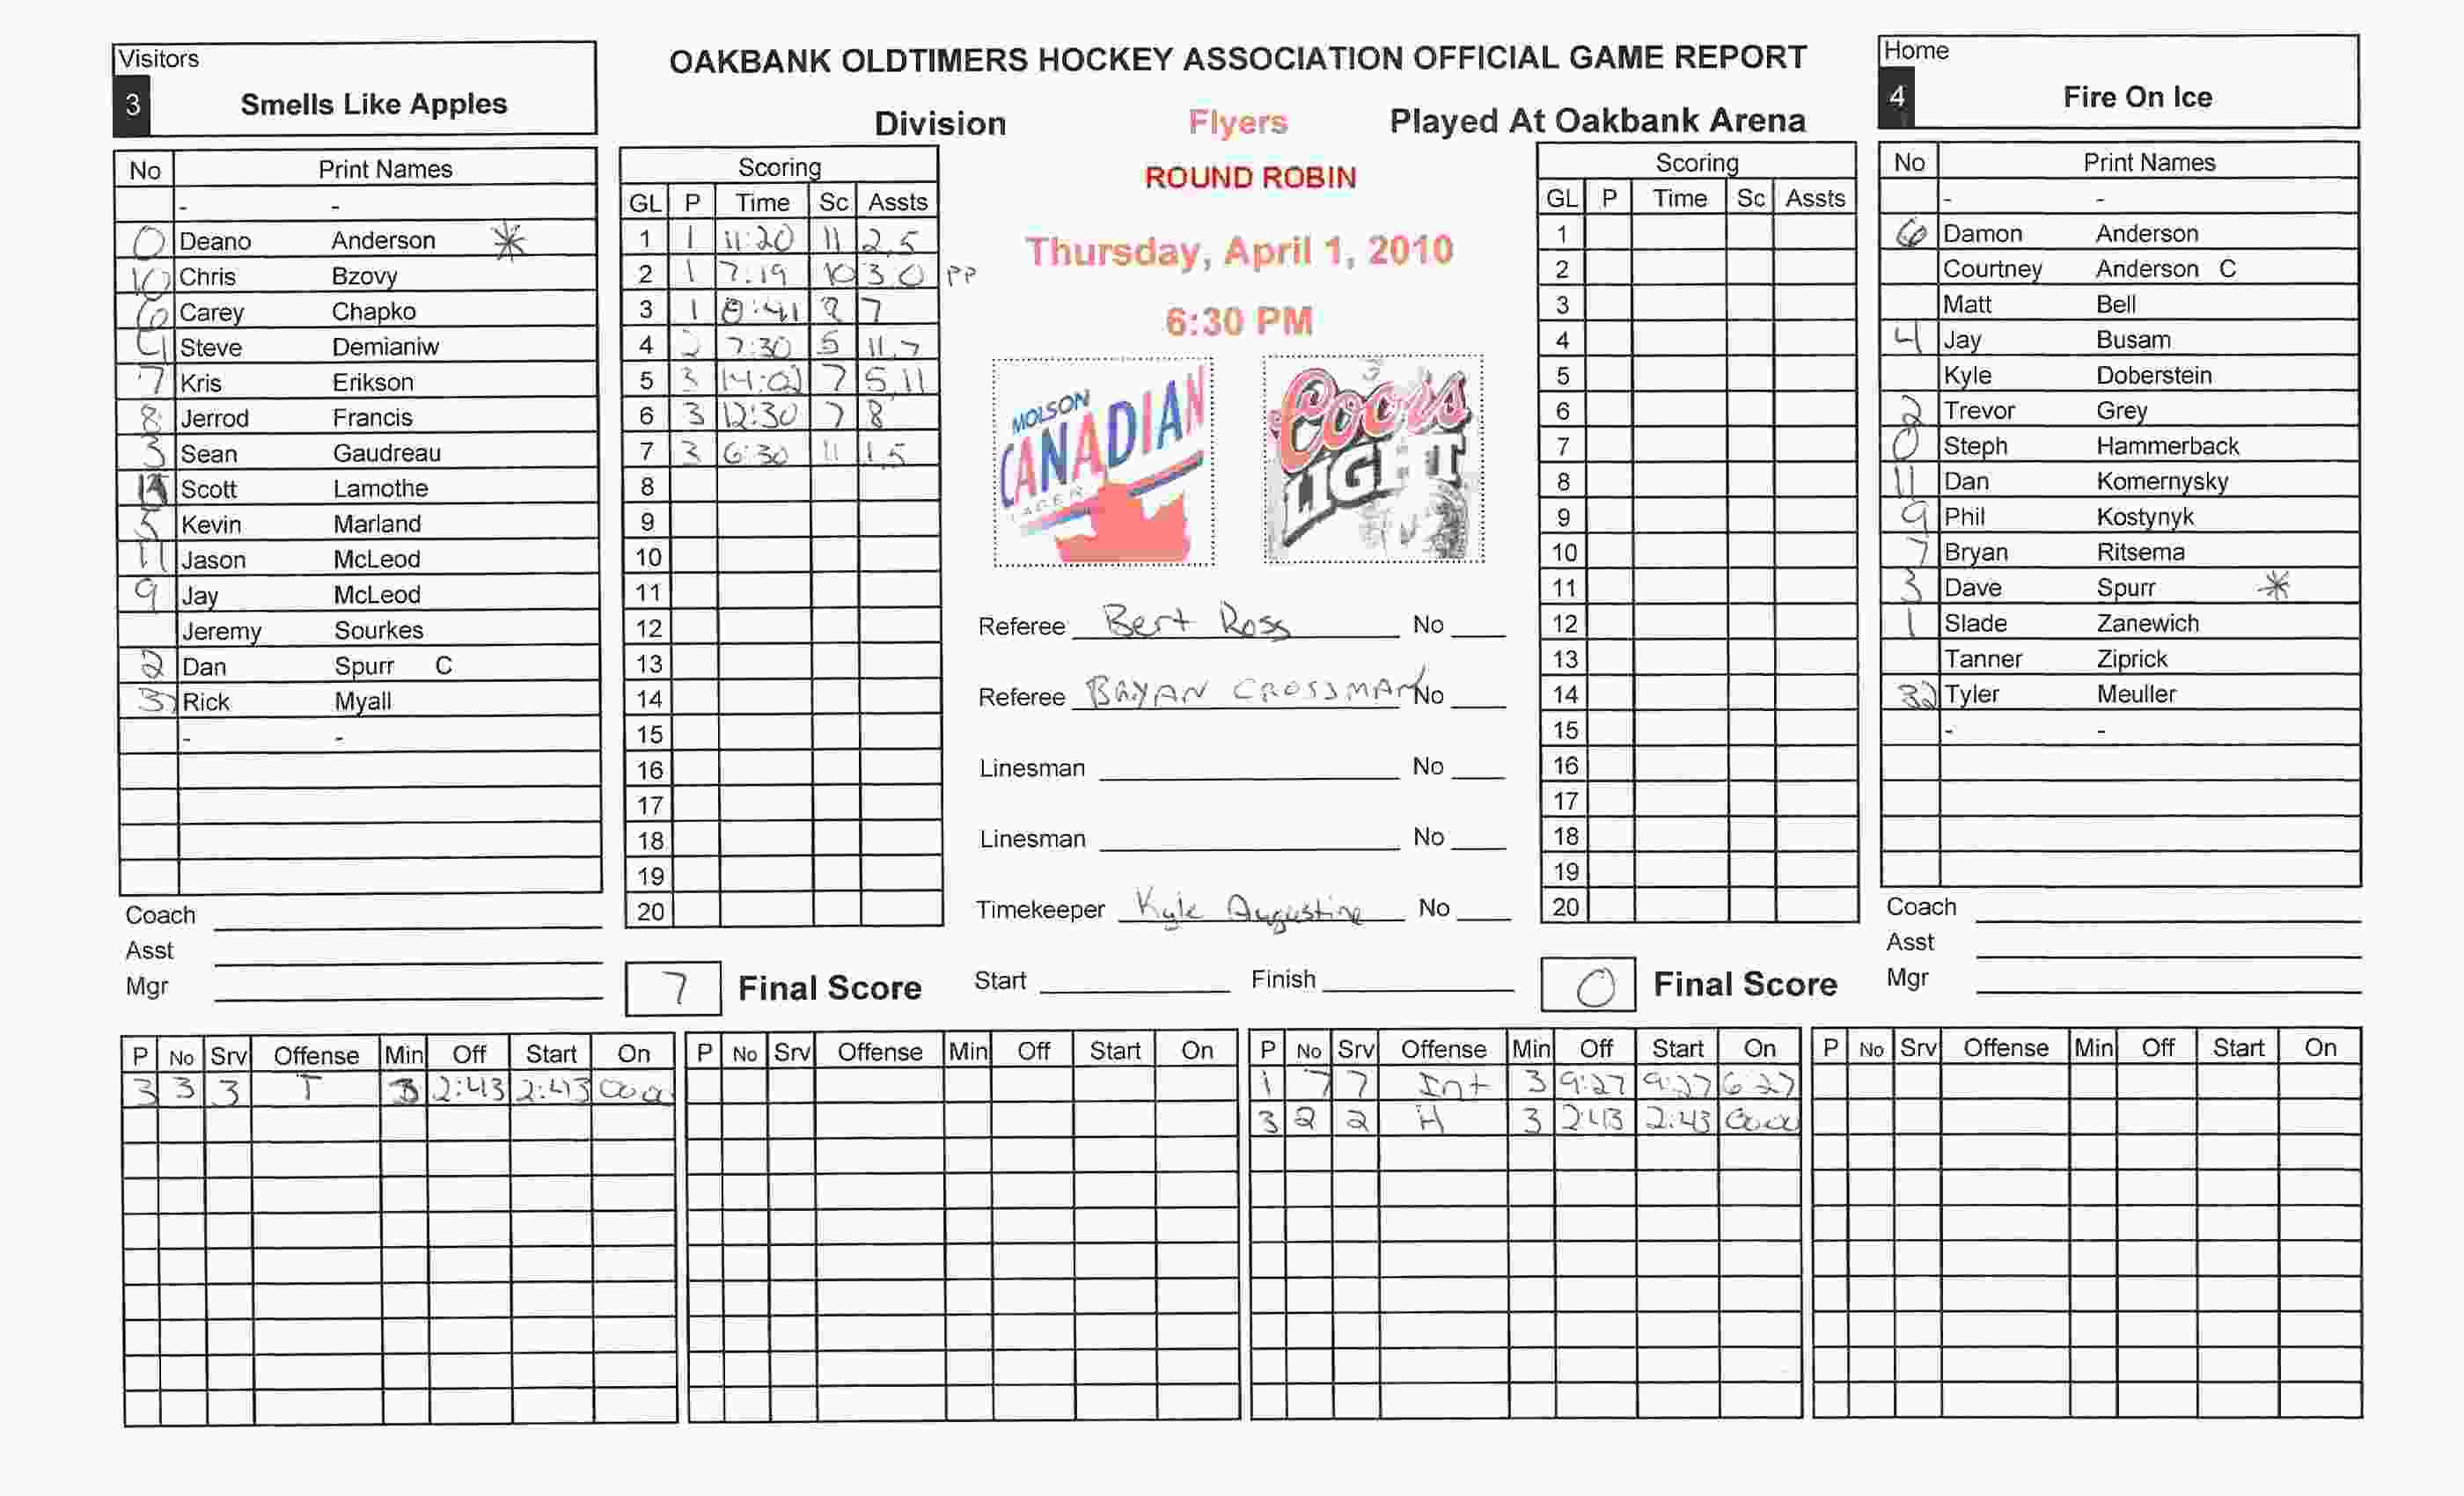 OAKBANK OLDTIMERS HOCKEY ASSOCIATION OFFICIAL GAME REPORT
Visitors
3 Smells Like Apples
Home
4 Fire On Ice
Division Flyers Played At Oakbank Arena
ROUND ROBIN
Thursday, April 1, 2010
6:30 PM
MOLSON CANADIAN LAGER
Coors LIGHT
No Print Names
- -
0 Deano Anderson *
10 Chris Bzovy
6 Carey Chapko
4 Steve Demianiw
7 Kris Erikson
8 Jerrod Francis
3 Sean Gaudreau
Scott Lamothe
5 Kevin Marland
11 Jason McLeod
9 Jay McLeod
Jeremy Sourkes
2 Dan Spurr C
Rick Myall
- -
Coach
Asst
Mgr
Scoring
GL P Time Sc Assts
1 1 11:20 11 2,5
2 1 7:19 10 3 0 PP
3 1 0:41 8 7
4 2 7:30 5 11,7
5 3 14:02 7 5,11
6 3 12:30 7 8
7 3 6:30 11 1,5
8
9
10
11
12
13
14
15
16
17
18
19
20
7 Final Score
Referee Bert Ross No
Referee BRYAN CROSSMAN No
Linesman No
Linesman No
Timekeeper Kyle Augustine No
Start Finish
Scoring
GL P Time Sc Assts
1
2
3
4
5
6
7
8
9
10
11
12
13
14
15
16
17
18
19
20
0 Final Score
No Print Names
- -
6 Damon Anderson
Courtney Anderson C
Matt Bell
4 Jay Busam
Kyle Doberstein
2 Trevor Grey
0 Steph Hammerback
11 Dan Komernysky
9 Phil Kostynyk
7 Bryan Ritsema
3 Dave Spurr *
1 Slade Zanewich
Tanner Ziprick
32 Tyler Meuller
- -
Coach
Asst
Mgr
P No Srv Offense Min Off Start On
3 3 3 T 3 2:43 2:43 00:00
P No Srv Offense Min Off Start On
P No Srv Offense Min Off Start On
1 7 7 Int 3 9:27 9:27 6:27
3 2 2 H 3 2:43 2:43 00:00
P No Srv Offense Min Off Start On